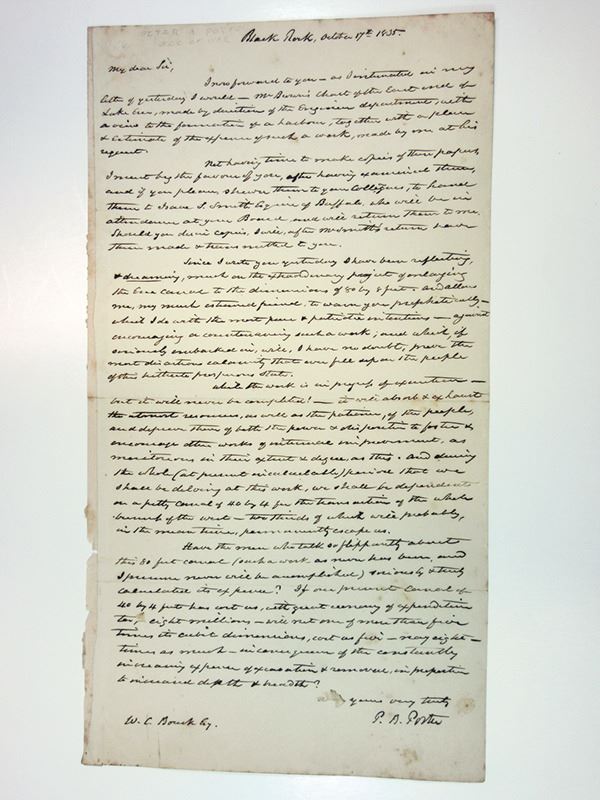 Black Rock, October 17th 1835.
My dear Sir,
I now forward to you – as I intimated in my
letter of yesterday I would – Mr Chart of the East end of
Lake Erie, made by direction of the Engineer department, with
a view to the formation of a harbour, together with a plan
& Estimate of the expense of such a work, made by me at his
request.
Not having time to make copies of these papers,
I must beg the favour of you, after having examined them,
and if you please, shewn them to your Colleagues, to hand
them to Isaac S. Smith Esquire of Buffalo, who will be in
attendance at your Board, and will return them to me.
Should you desire copies, I will, after Mr Smith's return have
them made & transmitted to you.
Since I wrote you yesterday I have been reflecting,
& dreaming, much on the extraordinary project of enlarging
the Erie canal to the dimensions of 80 by 8 feet. And allow
me, my much esteemed friend, to warn you prophetically –
which I do with the most pure & patriotic intentions – against
encouraging or countenancing such a work; and which if
seriously embarked in, will, I have no doubt, prove the
most disastrous calamity that ever fell upon the people
of this hitherto prosperous State.
While the work is in progress of execution –
but it will never be completed! – it will absorb & exhaust
the utmost resources, as well as the patience, of the people,
and deprive them of both the power & disposition to foster &
encourage other works of internal improvement, as
meritorious in their extent & degree, as this. And during
the whole (at present incalculable) period that we
shall be delving at this work, we shall be dependent
on a petty canal of 40 by 4 for the transaction of the whole
business of the west – two thirds of which will probably,
in the mean time, permanently escape us.
Have the men who talk so flippantly about
this 80 feet canal (such a work as never has been, and
I presume never will be accomplished) seriously & truly
calculated its expense? If our present Canal of
40 by 4 feet has cost us, with great economy of expenditure
too, eight millions – will not one of more than five
times its cubic dimensions, cost us five – nay eight –
times as much – in consequence of the constantly
increasing expense of excavation & removal, in proportion
to increased depth & breadth?
yours very truly
W. C. Bouck Esq. P. B. Porter